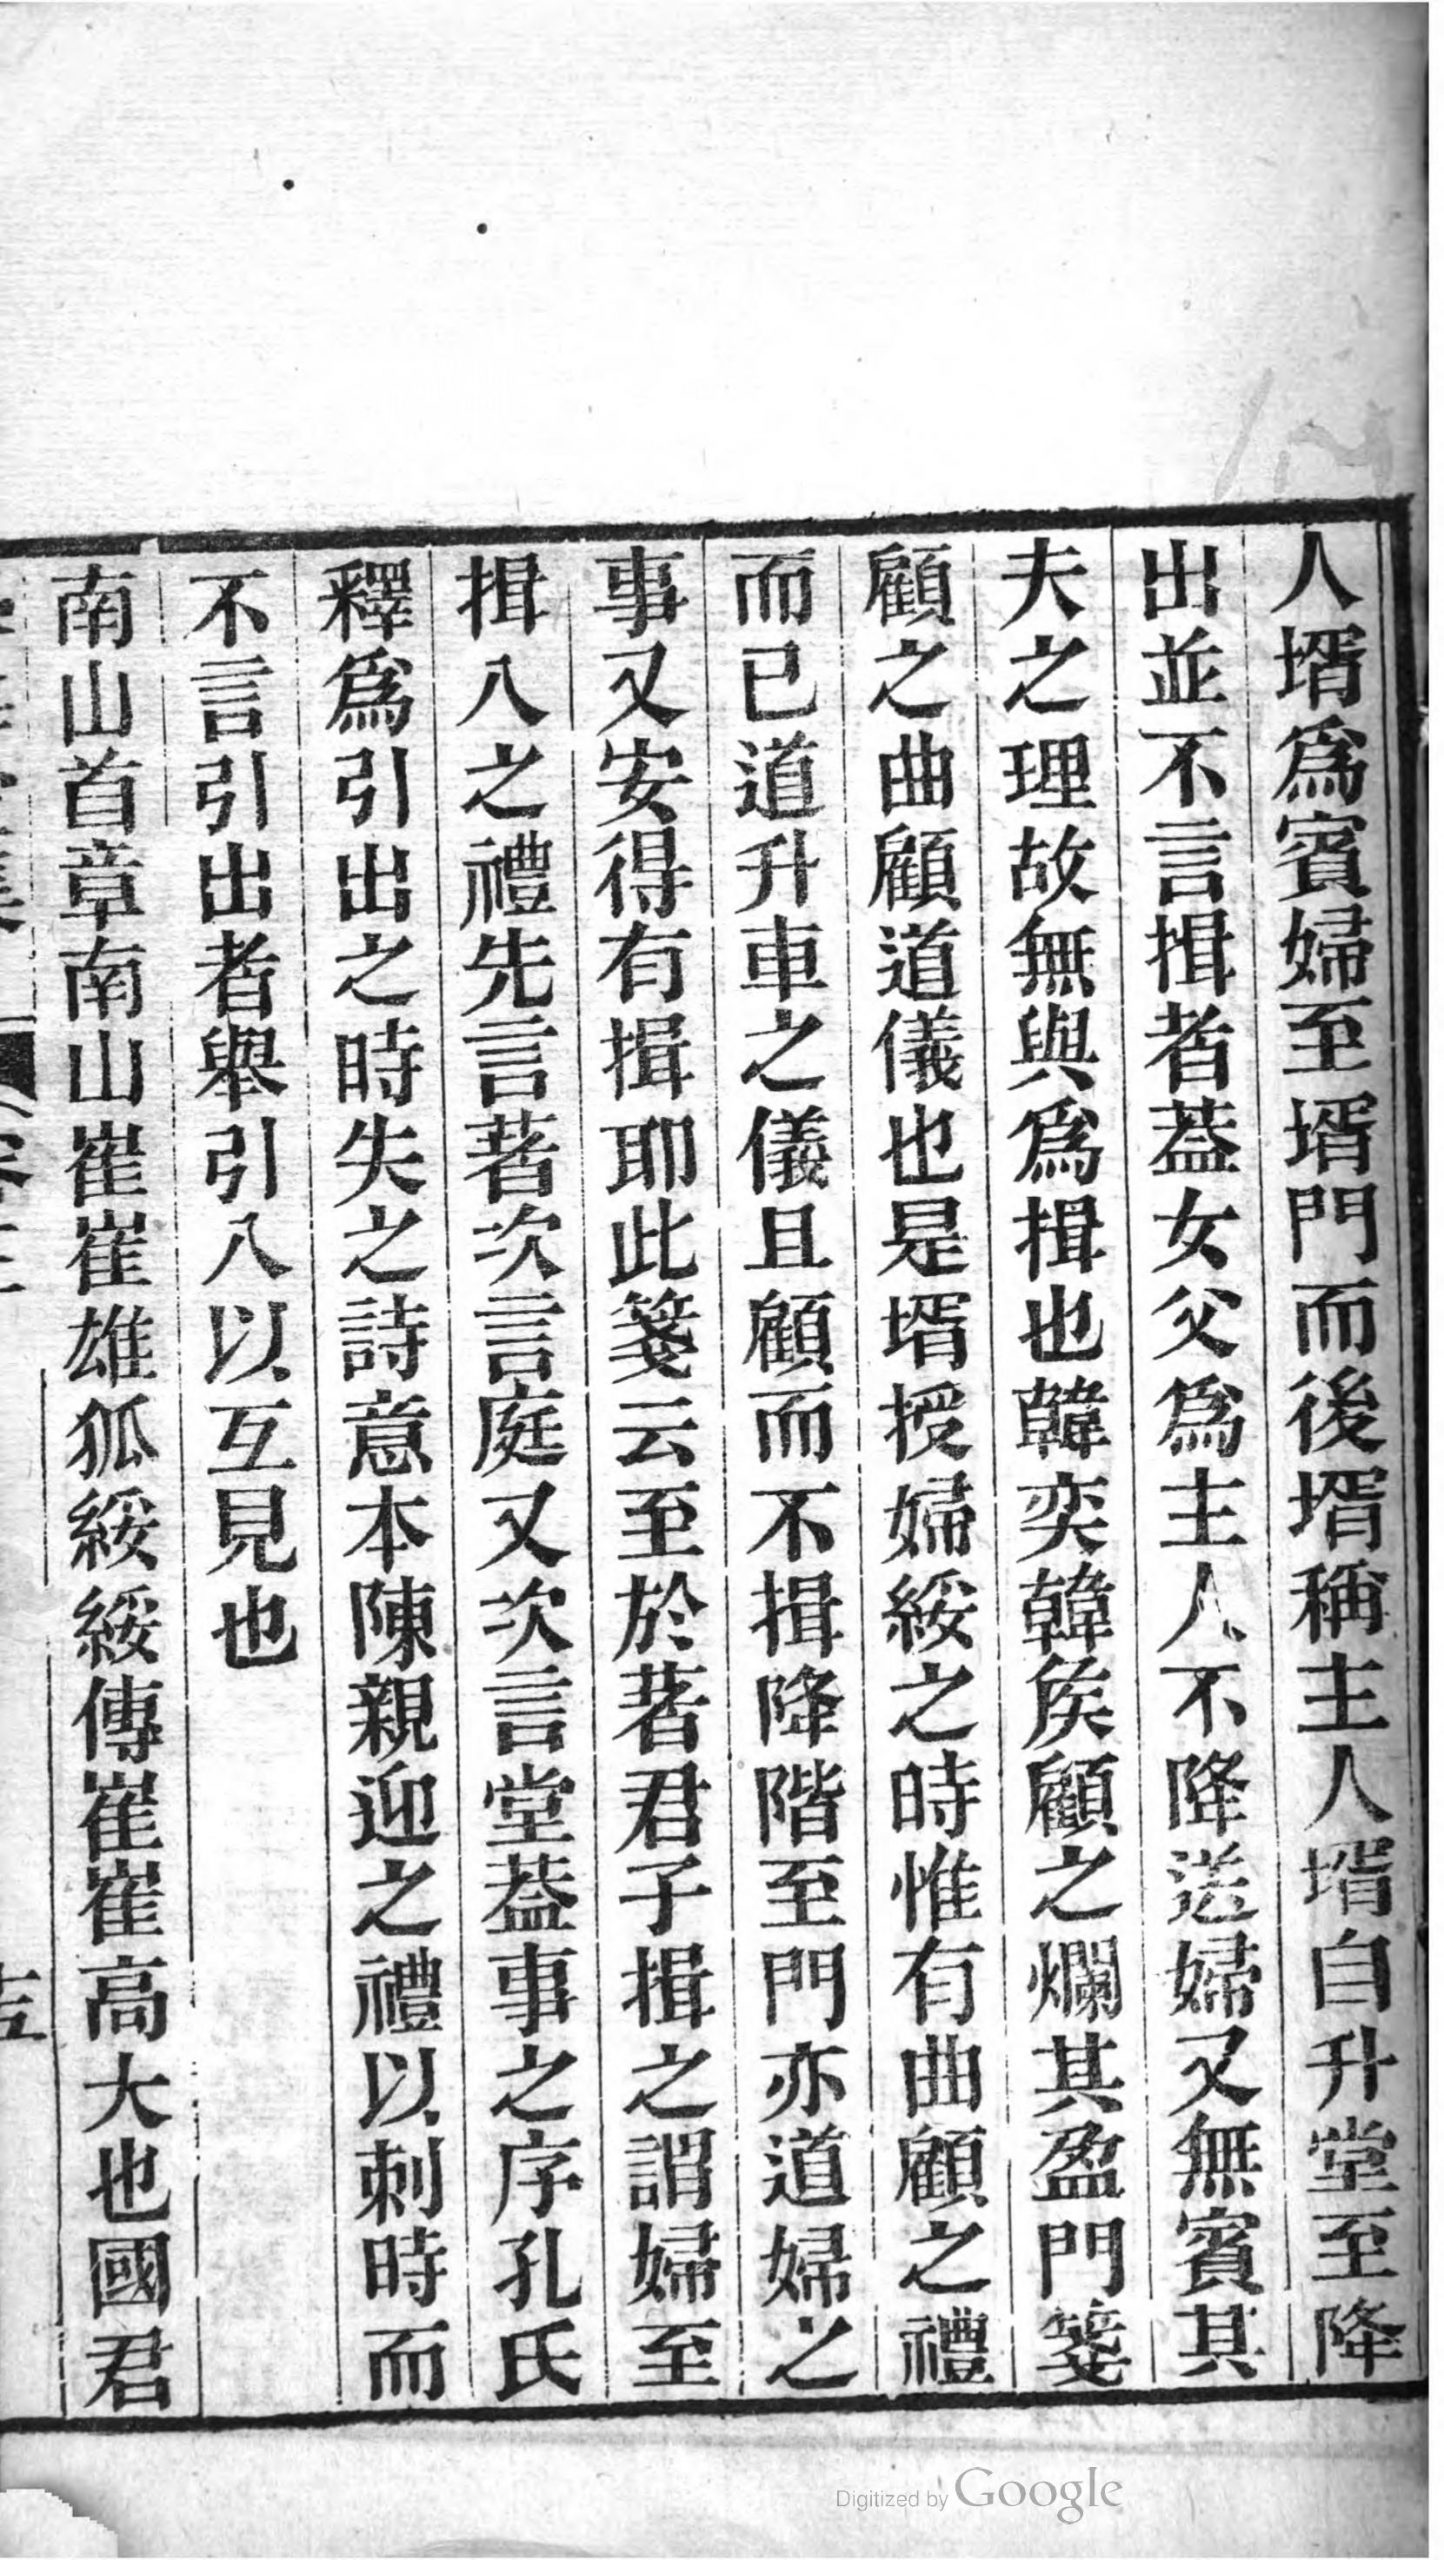 人壻爲賓婦至壻門而後壻稱主人壻自升堂至降
出並不言揖者葢女父爲主人不降送婦又無賓其
夫之理故無與爲揖也韓奕韓矦顧之爛其盈門箋
顧之曲顧道儀也是壻授婦綏之時惟有曲顧之禮
而已道升車之儀且顧而不揖降階至門亦道婦之
事又安得有揖耶此箋云至於著君子揖之謂婦至
揖入之禮先言著次言庭又次言堂葢事之序孔氏
釋爲引出之時失之詩意本陳親迎之禮以刺時而
不言引出者舉引入以互見也
南山首章南山崔崔雄狐綏綏傳崔崔高大也國君
Digitized by Google